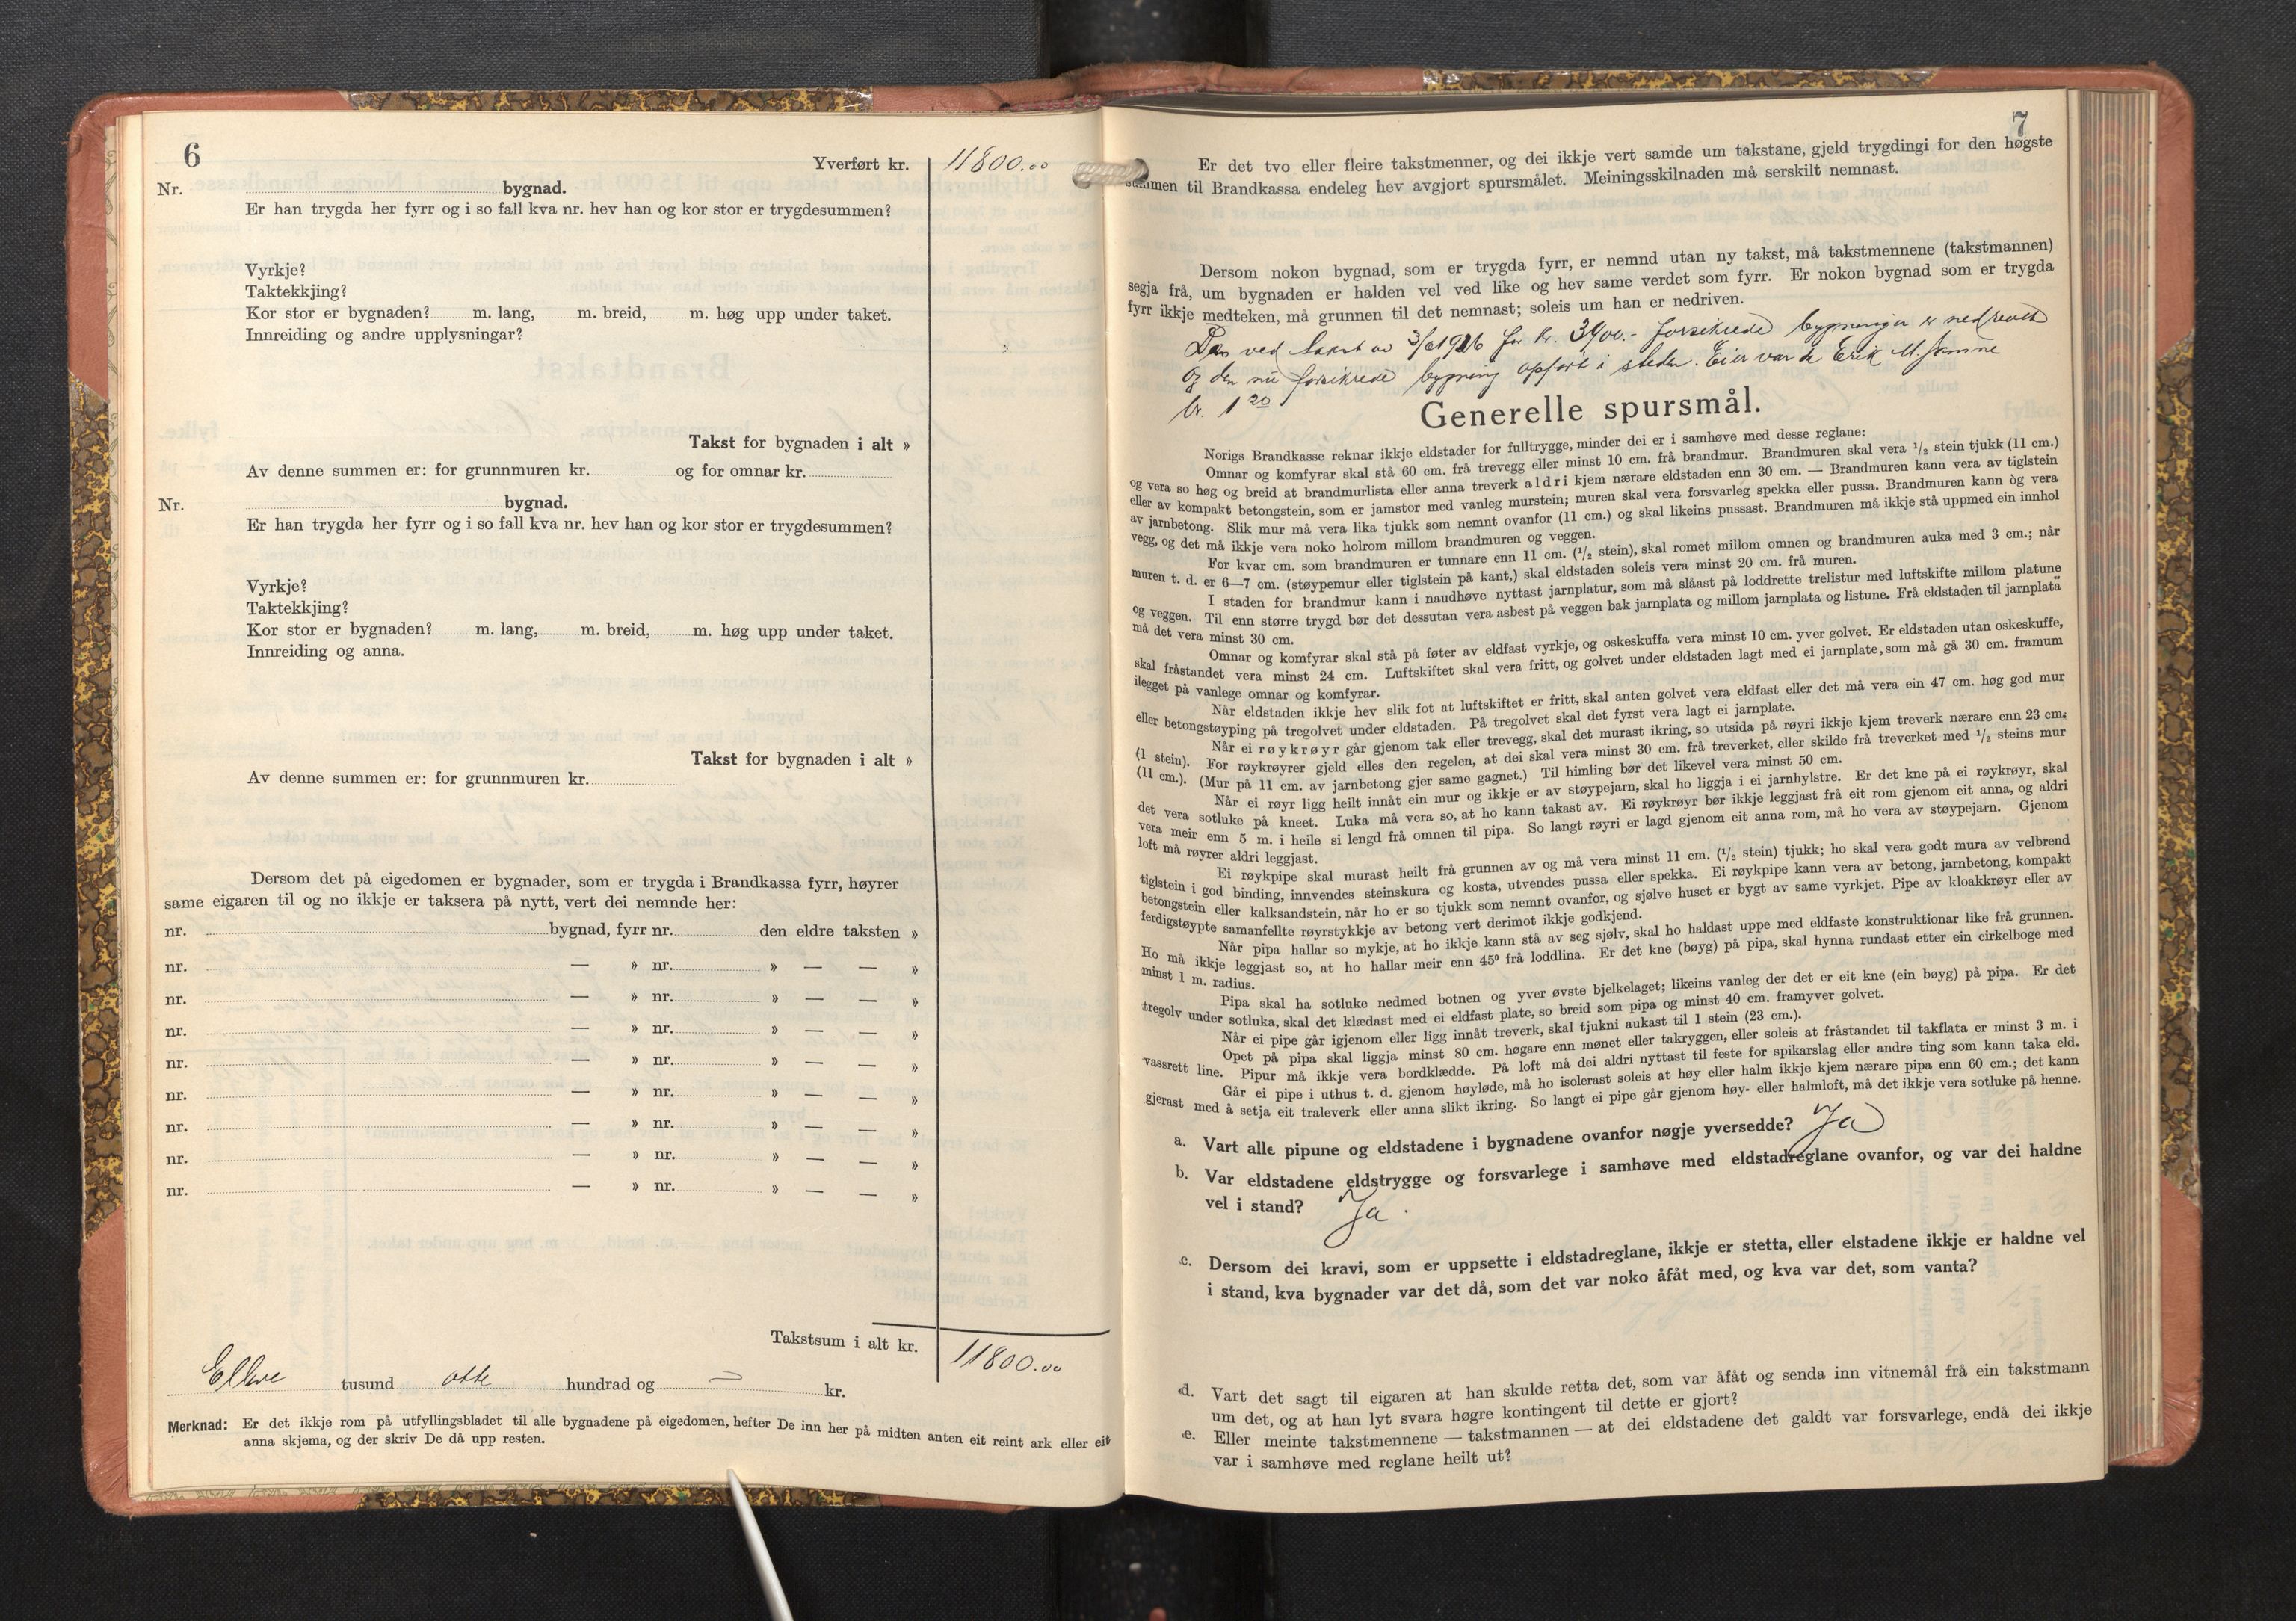 6
Yverført kr. 11800.00
Nr. bygnad.
Er han trygda her fyrr og i so fall kva nr. hev han og kor stor er trygdesummen?
Vyrkje?
Taktekkjing?
Kor stor er bygnaden? m. lang, m. breid, m. høg upp under taket.
Innreiding og andre upplysningar?
Takst for bygnaden i alt »
Av denne summen er: for grunnmuren kr. og for omnar kr.
Nr. bygnad.
Er han trygda her fyrr og i so fall kva nr. hev han og kor stor er trygdesummen?
Vyrkje?
Taktekkjing?
Kor stor er bygnaden? m. lang, m. breid, m. høg upp under taket.
Innreiding og anna.
Takst for bygnaden i alt »
Av denne summen er: for grunnmuren kr.
Dersom det på eigedomen er bygnader, som er trygda i Brandkassa fyrr, høyrer
same eigaren til og no ikkje er taksera på nytt, vert dei nemnde her:
nr. bygnad, fyrr nr. den eldre taksten »
nr. — » nr. » — — »
nr. — » nr. » — — »
nr. — » nr. » — — »
nr. — » nr. » — — »
nr. — » nr. » — — »
nr. — » nr. » — — »
nr. — » nr. » — — »
nr. — » nr. » — — »
Takstsum i alt kr. 11800.00
Elleve tusund otte hundrad og — kr.
Merknad: Er det ikkje rom på utfyllingsbladet til alle bygnadene på eigedomen, hefter De inn her på midten anten eit reint ark eller eit
anna skjema, og der skriv De då upp resten.
7
Er det tvo eller fleire takstmenner, og dei ikkje vert samde um takstane, gjeld trygdingi for den høgste
summen til Brandkassa endeleg hev avgjort spursmålet. Meiningsskilnaden må serskilt nemnast.
Dersom nokon bygnad, som er trygda fyrr, er nemnd utan ny takst, må takstmennene (takstmannen)
segja frå, um bygnaden er halden vel ved like og hev same verdet som fyrr. Er nokon bygnad som er trygda
fyrr ikkje medteken, må grunnen til det nemnast; soleis um han er nedriven.
Den ved takst av 3/6 1926 for kr. 3900.- forsikrede bygninger er nedrevet
og den nu forsikrede bygning opført i steden. Eier var da Erik M.
br. 1 20
Generelle spursmål.
Norigs Brandkasse reknar ikkje eldstader for fulltrygge, minder dei er i samhøve med desse reglane:
Omnar og komfyrar skal stå 60 cm. frå trevegg eller minst 10 cm. frå brandmur. Brandmuren skal vera ¹/₂ stein tjukk (11 cm.)
og vera so høg og breid at brandmurlista eller anna treverk aldri kjem nærare eldstaden enn 30 cm. — Brandmuren kann vera av tiglstein
eller av kompakt betongstein, som er jamstor med vanleg murstein; muren skal vera forsvarleg spekka eller pussa. Brandmuren kann òg vera
av jarnbetong. Slik mur må vera lika tjukk som nemnt ovanfor (11 cm.) og skal likeins pussast. Brandmuren må ikkje stå uppmed ein innhol
vegg, og det må ikkje vera noko holrom millom brandmuren og veggen.
For kvar cm. som brandmuren er tunnare enn 11 cm. (¹/₂ stein), skal romet millom omnen og brandmuren auka med 3 cm.; når
muren t. d. er 6—7 cm. (støypemur eller tiglstein på kant,) skal eldstaden soleis vera minst 20 cm. frå muren.
I staden for brandmur kann i naudhøve nyttast jarnplatur, som må slåast på loddrette trelistur med luftskifte millom platune
og veggen. Til enn større trygd bør det dessutan vera asbest på veggen bak jarnplata og millom jarnplata og listune. Frå eldstaden til jarnplata
må det vera minst 30 cm.
Omnar og komfyrar skal stå på føter av eldfast vyrkje, og oskeskuffa vera minst 10 cm. yver golvet. Er eldstaden utan oskeskuffe,
skal fråstandet vera minst 24 cm. Luftskiftet skal vera fritt, og golvet under eldstaden lagt med ei jarnplate, som må gå 30 cm. framum
ilegget på vanlege omnar og komfyrar.
Når eldstaden ikkje hev slik fot at luftskiftet er fritt, skal anten golvet vera eldfast eller det må vera ein 47 cm. høg god mur
eller betongstøyping på tregolvet under eldstaden. På tregolvet skal det fyrst vera lagt ei jarnplate.
Når ei røykrøyr går gjenom tak eller trevegg, skal det murast ikring, so utsida på røyri ikkje kjem treverk nærare enn 23 cm.
(1 stein). For røykrøyrer gjeld elles den regelen, at dei skal vera minst 30 cm. frå treverket, eller skilde frå treverket med ¹/₂ steins mur
(11 cm.). (Mur på 11 cm. av jarnbetong gjer same gagnet.) Til himling bør det likevel vera minst 50 cm.
Når ei røyr ligg heilt innåt ein mur og ikkje er av støypejarn, skal ho liggja i ei jarnhylstre. Er det kne på ei røykrøyr, skal
det vera sotluke på kneet. Luka må vera so, at ho kann takast av. Ei røykrøyr bør ikkje leggjast frå eit rom gjenom eit anna, og aldri
vera meir enn 5 m. i heile si lengd frå omnen til pipa. So langt røyri er lagd gjenom eit anna rom, må ho vera av støypejarn. Gjenom
loft må røyrer aldri leggjast.
Ei røykpipe skal murast heilt frå grunnen av og må vera minst 11 cm. (¹/₂ stein) tjukk; ho skal vera godt mura av velbrend
tiglstein i god binding, innvendes steinskura og kosta, utvendes pussa eller spekka. Ei røykpipe kann vera av betong, jarnbetong, kompakt
betongstein eller kalksandstein, når ho er so tjukk som nemnt ovanfor, og sjølve huset er bygt av same vyrkjet. Pipe av kloakkrøyr eller av
ferdigstøypte samanfellte røyrstykkje av betong vert derimot ikkje godkjend.
Når pipa hallar so mykje, at ho ikkje kann stå av seg sjølv, skal ho haldast uppe med eldfaste konstruktionar like frå grunnen.
Ho må ikkje leggjast so, at ho hallar meir enn 45° frå loddlina. Er det kne (bøyg) på pipa, skal hynna rundast etter ein cirkelboge med
minst 1 m. radius.
Pipa skal ha sotluke nedmed botnen og yver øvste bjelkelaget; likeins vanleg der det er eit kne (ein bøyg) på pipa. Er det
tregolv under sotluka, skal det klædast med ei eldfast plate, so breid som pipa og minst 40 cm. framyver golvet.
Når ei pipe går igjenom eller ligg innåt treverk, skal tjukni aukast til 1 stein (23 cm.).
Opet på pipa skal liggja minst 80 cm. høgare enn mønet eller takryggen, eller soleis at fråstandet til takflata er minst 3 m. i
vassrett line. Pipur må ikkje vera bordklædde. På loft må dei aldri nyttast til feste for spikarslag eller andre ting som kann taka eld.
Går ei pipe i uthus t. d. gjenom høyløde, må ho isolerast soleis at høy eller halm ikkje kjem nærare pipa enn 60 cm.; det kann
gjerast med å setja eit traleverk eller anna slikt ikring. So langt ei pipe går gjenom høy- eller halmloft, må det ikkje vera sotluke på henne.
a. Vart alle pipune og eldstadene i bygnadene ovanfor nøgje yversedde? Ja
b. Var eldstadene eldstrygge og forsvarlege i samhøve med eldstadreglane ovanfor, og var dei haldne
vel i stand? Ja.
c. Dersom dei kravi, som er uppsette i eldstadreglane, ikkje er stetta, eller elstadene ikkje er haldne vel
i stand, kva bygnader var det då, som det var noko åfåt med, og kva var det, som vanta?
d. Vart det sagt til eigaren at han skulde retta det, som var åfåt og senda inn vitnemål frå ein takstmann
um det, og at han lyt svara høgre kontingent til dette er gjort?
e. Eller meinte takstmennene — takstmannen — at dei eldstadene det galdt var forsvarlege, endå dei ikkje
var i samhøve med reglane heilt ut?